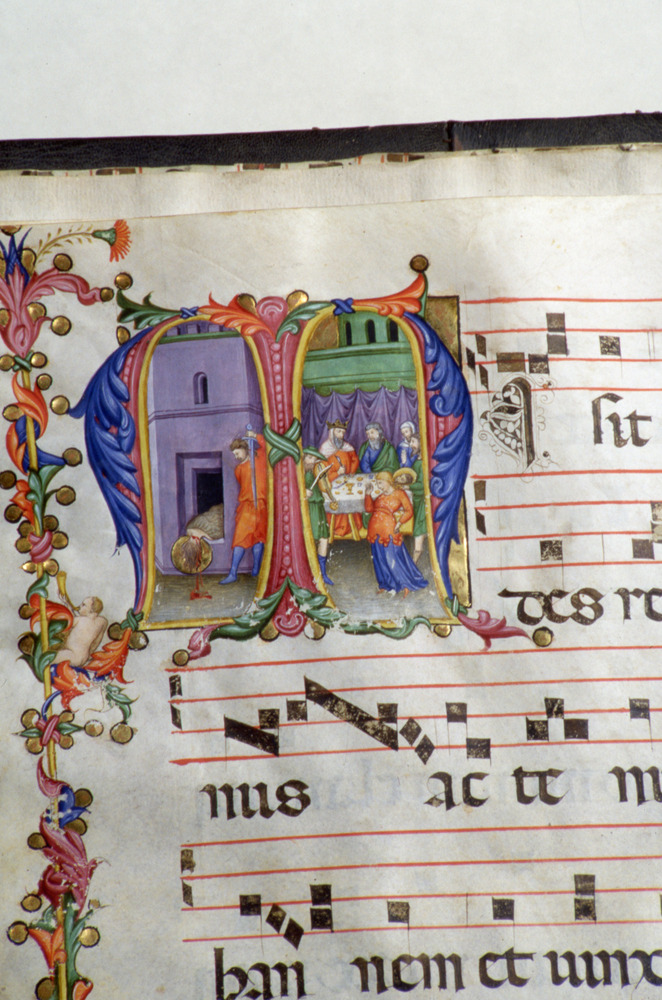 MI sit
des re
nus ac te nu
han nem et uinx